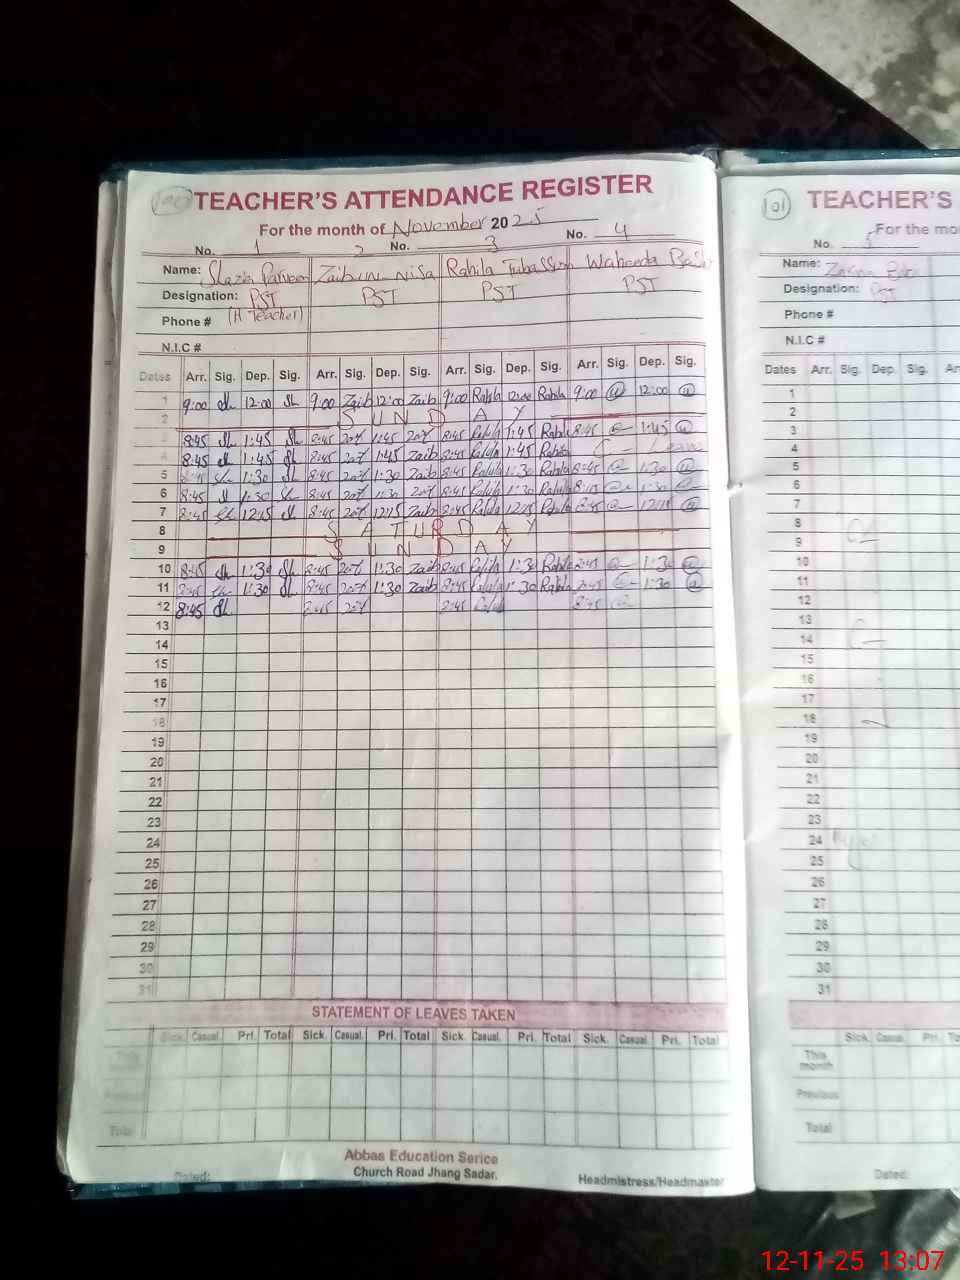 100 TEACHER'S ATTENDANCE REGISTER
For the month of November 2025
No. 1 2 No. 3 No. 4
Name: Shazia Parveen Zaibun Nisa Rahila Tubassum Waheeda Bashir
Designation: PST PST PST PST
Phone # (H Teacher)
N.I.C #
Dates Arr. Sig. Dep. Sig. Arr. Sig. Dep. Sig. Arr. Sig. Dep. Sig. Arr. Sig. Dep. Sig.
1 9:00 Sh 12:00 Sh 9:00 Zaib 12:00 Zaib 9:00 Rahila 12:00 Rahila 9:00 12:00
2 SUNDAY
3 8:45 Sh 1:45 Sh 8:45 1:45 8:45 Rahila 1:45 Rahila 8:45 1:45
4 8:45 Sh 1:45 Sh 8:45 1:45 Zaib 8:45 Rahila 1:45 Rahila C- Leave
5 8:45 Sh 1:30 Sh 8:45 1:30 Zaib 8:45 Rahila 1:30 Rahila 8:45 1:30
6 8:45 Sh 1:30 Sh 8:45 1:30 8:45 Rahila 1:30 Rahila 8:45 1:30
7 8:45 Sh 12:15 Sh 8:45 12:15 Zaib 8:45 Rahila 12:15 Rahila 8:45 12:15
8 SATURDAY
9 SUNDAY
10 8:45 Sh 1:30 Sh 8:45 1:30 Zaib 8:45 Rahila 1:30 Rahila 8:45 1:30
11 8:45 Sh 1:30 Sh 8:45 1:30 Zaib 8:45 Rahila 1:30 Rahila 8:45 1:30
12 8:45 Sh 8:45 8:45 Rahila 8:45
13
14
15
16
17
18
19
20
21
22
23
24
25
26
27
28
29
30
31
STATEMENT OF LEAVES TAKEN
Sick. Casual. Pri. Total Sick. Casual. Pri. Total Sick. Casual. Pri. Total Sick. Casual. Pri. Total
This
Previous
Total
Abbas Education Serice
Church Road Jhang Sadar.
Dated: Headmistress/Headmaster
101 TEACHER'S
For the mo
No. 5
Name:
Designation: PST
Phone #
N.I.C #
Dates Arr. Sig. Dep. Sig. Arr
1
2
3
4
5
6
7
8
9
10
11
12
13
14
15
16
17
18
19
20
21
22
23
24
25
26
27
28
29
30
31
Sick. Casual. Pri. To
This month
Previous
Total
Dated:
12-11-25 13:07